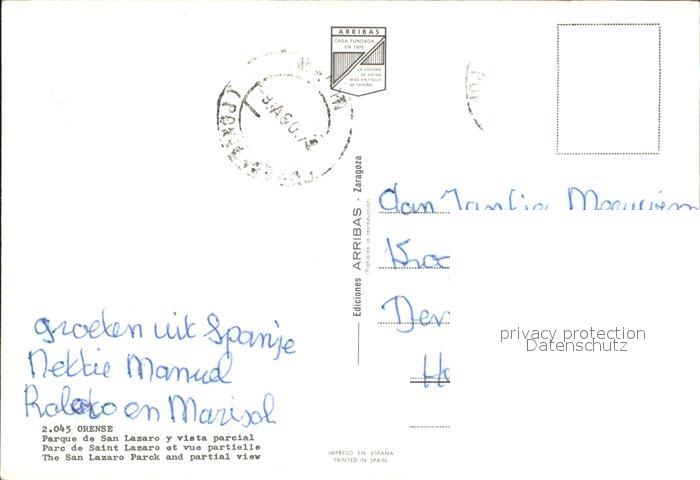 ARRIBAS
CASA FUNDADA
EN 1905
LA EDITORA
DE VISTAS
MAS ANTIGUA
DE ESPAÑA
Ediciones ARRIBAS - Zaragoza
(Prohibida la reproducción)
Aan
privacy protection
Datenschutz
groeten uit Spanje
Nellie Manuel
en Marisol
2.045 ORENSE
Parque de San Lazaro y vista parcial
Parc de Saint Lazaro et vue partielle
The San Lazaro Parck and partial view
IMPRESO EN ESPAÑA
PRINTED IN SPAIN